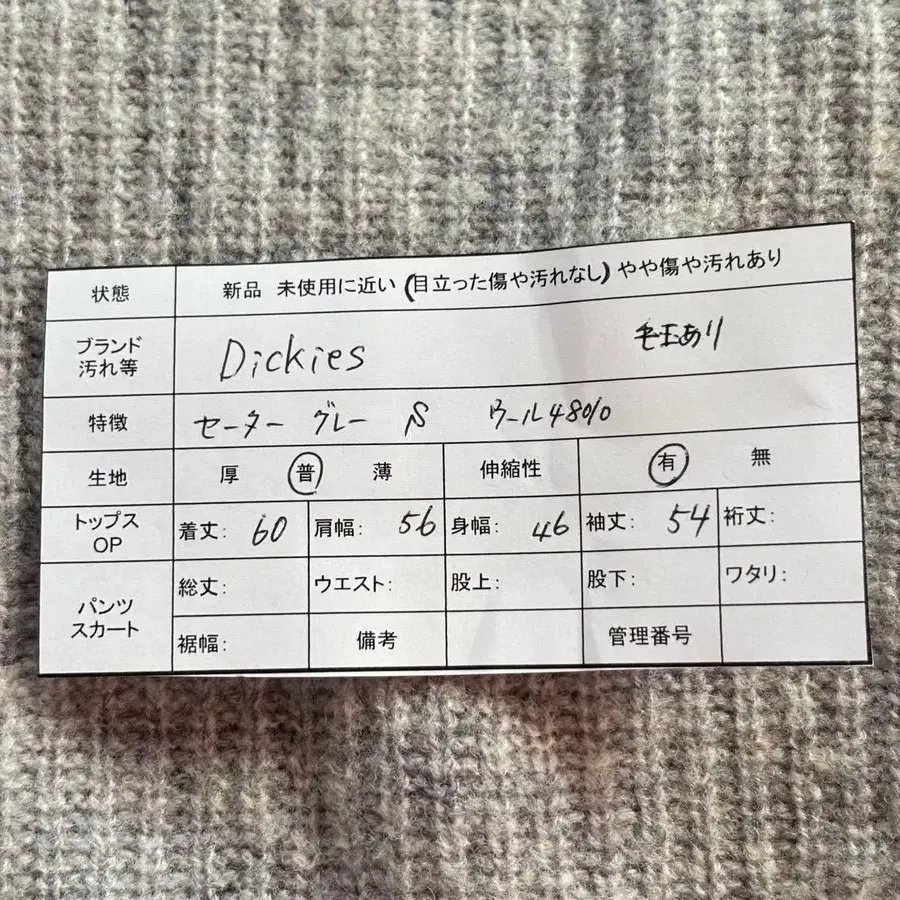 状態 新品 未使用に近い (目立った傷や汚れなし) やや傷や汚れあり
ブランド
汚れ等 Dickies 毛玉あり
特徴 セーター グレー S ウール48%
生地 厚 普 薄 伸縮性 有 無
トップス
OP 着丈: 60 肩幅: 56 身幅: 46 袖丈: 54 裄丈:
パンツ
スカート 総丈: ウエスト: 股上: 股下: ワタリ:
裾幅: 備考 管理番号